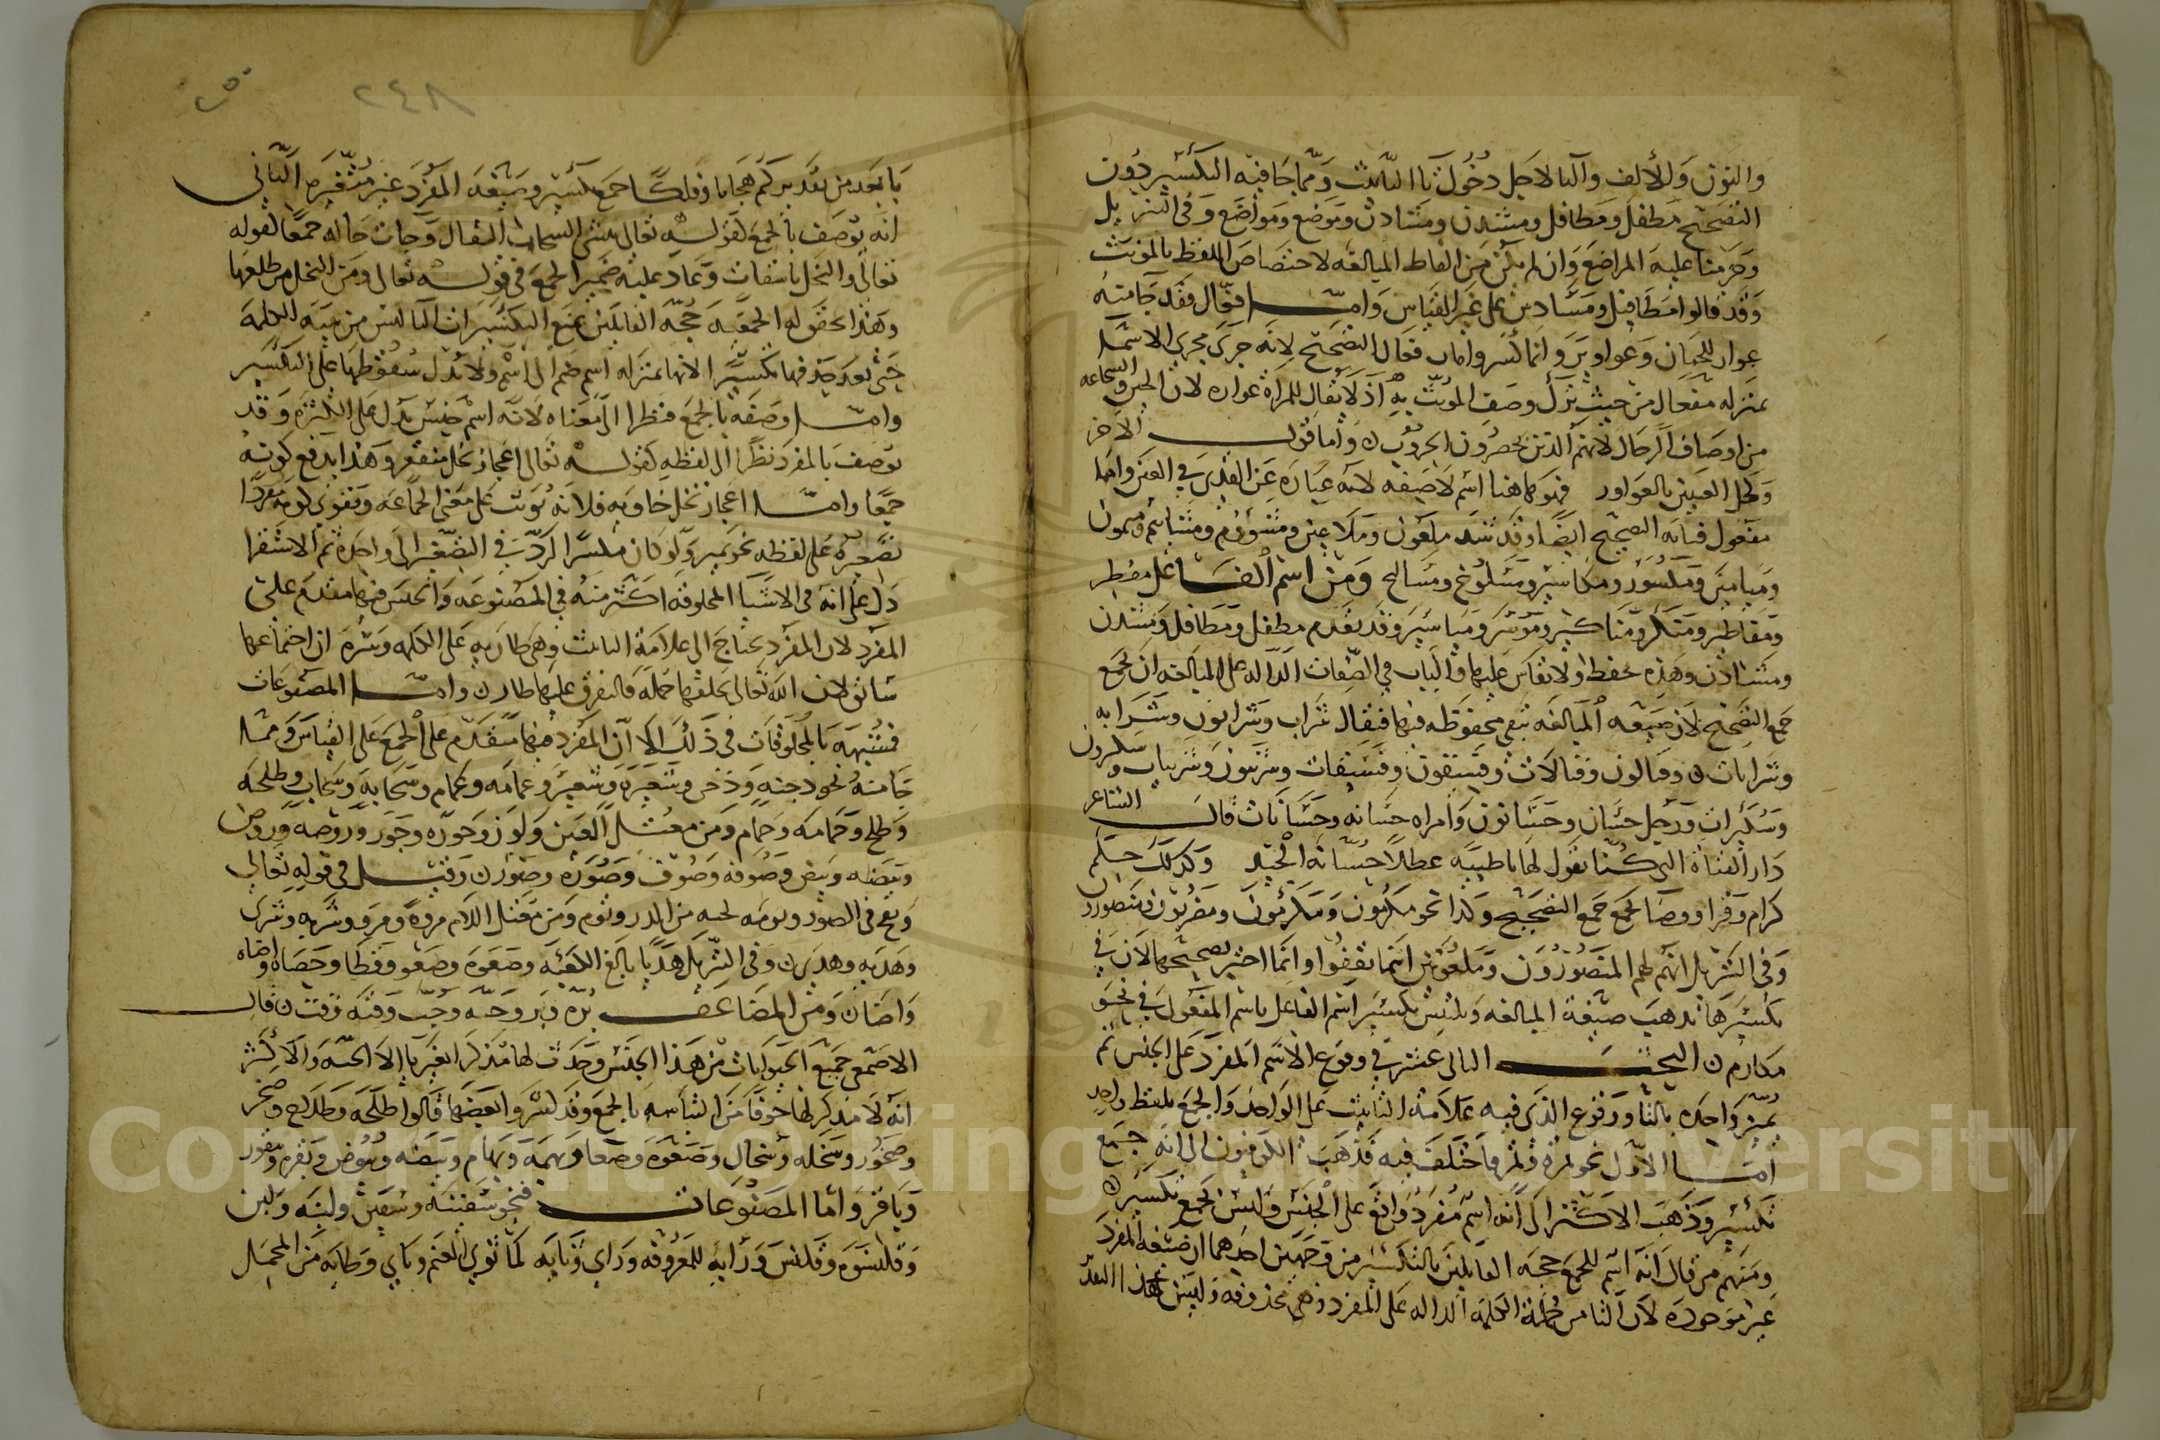 والنون وللألف والتا لاجل دخول تا التانيث ومما جا فيه التكسير دون
التصحيح مطفل ومطافل ومشدن ومشادن وموضع ومواضع وفى التنزيل
وحرمنا عليه المراضع وان لم يكن من الفاظ المبالغه لاختصاص اللفظ بالمونث
وقد قالوا مطافيل ومشادين على غير القياس وامـا فعّال فقد جا منه
عوار للجبان وعواوير وانما كسروا باب فعال التصحيح لانه جرى مجرى الاسما
بمنزله مفعال من حيث ترك وصف المونث به اذ لا يقال للمراة عواره لان الجبن والشجاعه
من اوصاف الرجال لانهم الذين يحضرون الحروب واما قول الاخر
وكحل العينين بالعواور فهو هاهنا اسم لا صفه لانه عباره عن القذى في العين واما
مفعول فبابه الصحيح ايضا وقد شذ ملعون وملاعين ومشوم ومشائيم وميمون
وميامين ومكسور ومكاسير ومسلوخ ومساليخ ومن اسم الفاعل مفطر
ومفاطير ومنكر ومناكير وموسر ومياسير وقد تقدم مطفل ومطافل ومشدن
ومشادن وهذه تحفظ ولا يقاس عليها والباب في الصفات الداله على المبالغه ان تجمع
جمع التصحيح لان صيغه المبالغه تبقى محفوظه فيها فيقال شراب وشرابون وشرابه
وشرابات وقتالون وقتالات وفسيقون وفسيقات وشريبون وشريبات وسكيرون
وسكيرات ورجل حسان وحسانون وامراه حسانه وحسانات قال الشاعر
دار الفتاة التي كنا نقول لها يا ظبيه عطلا حسانه الجيد وكذلك حكم
كرام وقرا ووضا تجمع جمع التصحيح وكذا نحو مكرمون ومكرمون ومضربون ومنصورون
وفى التنزيل انهم لهم المنصورون وملعونين اينما ثقفوا وانما اختير تصحيحها لان في
تكسيرها تذهب صيغة المبالغه ويلتبس تكسير اسم الفاعل باسم المفعول في نحو
مكارم البحث الثانى عشر في وقوع الاسم المفرد على الجنس ثم
يميز واحده بالتا ووقوع الذى فيه علامة التانيث على الواحد والجمع بلفظ واحد
امـا الاول نحو تمرة وتمر فاختلف فيه فذهب الكوفيون الى انه جمع
تكسير وذهب الاكثر الى انه اسم مفرد واقع على الجنس وليس بجمع تكسير
ومنهم من قال انه اسم للجمع حجه القايلين بالتكسير من وجهين احدهما ان صيغه المفرد
غير موجوده لان التا من جملة الكلمه الداله على المفرد وهى محذوفه وليس هذا التقدير
٢٤٨
با بعد من تقدير كم هجانا وفلكا جمع تكسير وصيغه المفرد غير متغيره الثاني
انه يوصف بالجمع لقوله تعالى ينشى السحاب الثقال وجات حاله جمعا لقوله
تعالى والنخل باسقات وعاد عليه ضمير الجمع في قوله تعالى ومن النخل من طلعها
وهذا تحقق له الجمعيه حجه القايلين بمنع التكسير ان التا ليس من بنيه الكلمه
حتى يعد حذفها تكسيرا لانها بمنزله اسم ضم الى اسم ولا يدل سقوطها على التكسير
وامـا وصفه بالجمع فنظرا الى معناه لانه اسم جنس يدل على الكثره وقد
يوصف بالمفرد نظرا الى لفظه كقوله تعالى اعجاز نخل منقعر وهذا يدفع كونه
جمعا وامـا اعجاز نخل خاويه فلانه يونث على معنى الجماعه ويقوى كونه مفردا
تصغيره على لفظه نحو تمير ولو كان مكسرا لرد في التصغير الى واحده ثم الاستقرا
دل على انه فى الاشيا المخلوقه اكثر منه في المصنوعه والجنس فيها مقدم على
المفرد لان المفرد يحتاج الى علامة التانيث وهى طاريه على الكلمه وتمره ان اجتماعها
سابق لان الله تعالى يخلقها جمله فالتفرق عليها طار وامـا المصنوعات
فمشبهه بالمخلوقات في ذلك الا ان المفرد فيها متقدم على الجمع على القياس ومما
جا منه نحو دجنه ودخن وشعيره وشعير وعمامه وعمام وسحابه وسحاب وطلحه
وطلح وحمامه وحمام ومن معتل العين ولوز وجوزه وجوز وروضه وروض
وبيضه وبيض وصوفه وصوف وصوره وصور وقيل في قوله تعالى
ونفخ فى الصور وثومه لحبه من الدر وثوم ومن معتل اللام مروه ومرو وشريه وشرى
وهديه وهدى وفى التنزيل هديا بالغ الكعبه وصعوه وصعو وقطا وحصاه واضاه
واضا ومن المضاعف بره وبر وحبه وحب وقته وقت قال
الاصمعى جميع الحيوانات من هذا الجنس وجدت لها مذكرا بغير تا الا الحيه والاكثر
انه لا مذكر لها خوفا من التباسه بالجمع وقد كسروا بعضها قالوا طلحه وطلاح وصخر
وصخور وسخله وسخال وصعوه وصعا وبهمه وبهام وبيضه وبيوض وبقره وبقور
وباقر واما المصنوعات فنحو سفينه وسفين ولبنه ولبن
وقلنسوه وقلنس ورايه للمعروفه وراى وثايه لماوى الغنم وثاى وطايه من المحمل